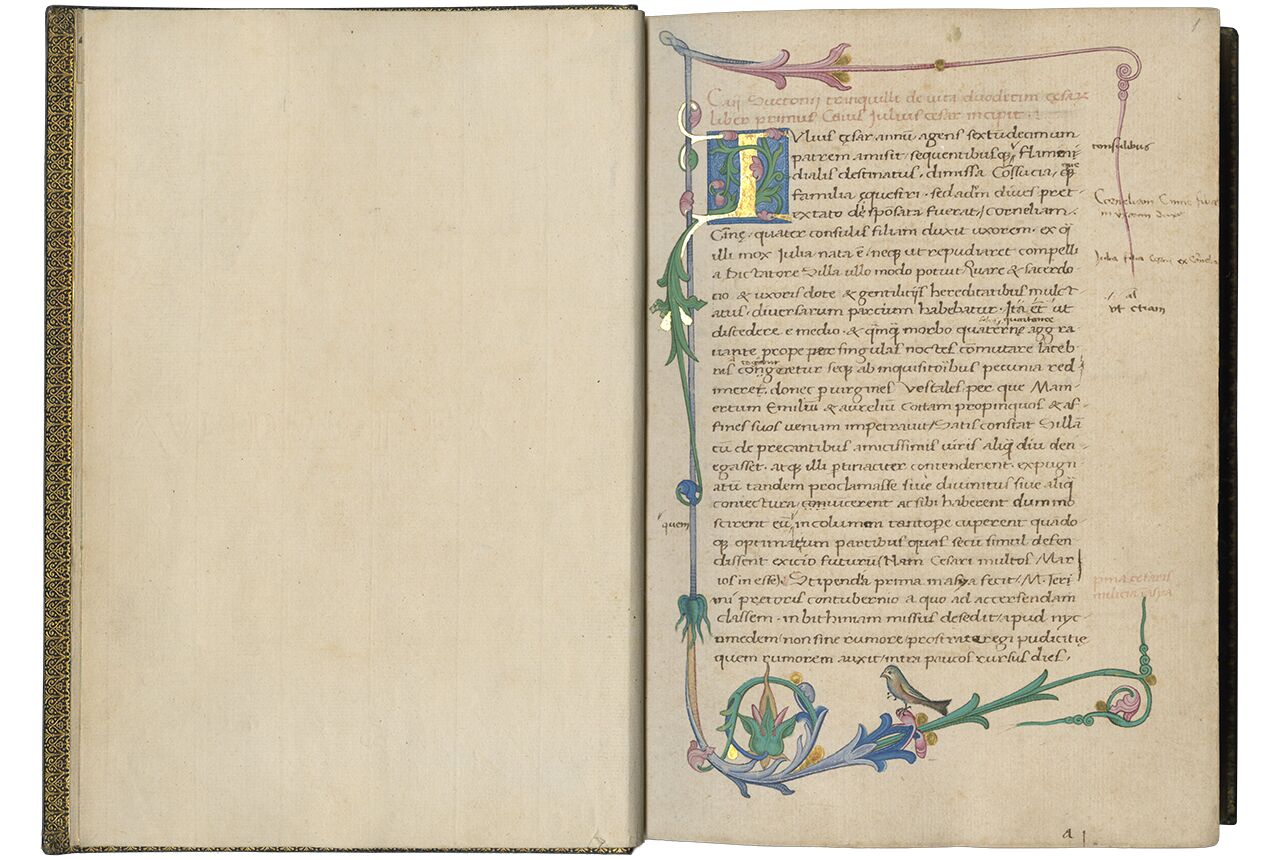 1
Caij Suetonij tranquilli de vita duodecim cesarz
liber primus Caius Iulius cesar incipit
IVlius cesar annū agens sextūdecimum
patrem amisit sequentibusq, flamen
dialis destinatus, dimissa Cossucia, que
familia equestri sed admō dives pret-
extato desposata fuerat, Corneliam
Cinnę quater consulis filiam duxit uxorem ex q̄
illi mox Iulia nata ē, neq, ut repudiaret compelli
a Dictatore Silla ullo modo potuit Quare & sacerdo
cio & uxoris dote & gentilicijs hereditatibus mulct
atus, diversarum parcium habebatur. Ita et ut
discedere e medio & q̄mq̄ morbo quaterne aggra
vante prope per singulas noctes cōmutare lateb
ras cogeretur seq, ab inquisitoribus pecunia red
imeret, donec p virgines Vestales per que Mam-
ertum Emiliū & aureliū Cottam propinquos & af-
fines suos veniam impetravit/ Satis constat Sillā
cū de precantibus amicissimis viris aliq̄ diu den
egasset atq, illi ptinaciter contenderent expugn
atū tandem proclamasse sive divinitus sive aliq̄
coniectura, convicerent ac sibi haberent dummō
scirent eū, incolumem tantope cuperent quādo
q, optimatum partibus quas secū simul defen
dissent exicio futurū (Nam Cesari multos Mar
ios inesse). Stipendia prima in asya fecit/ M. Teri
mi pretoris contubernio a quo ad accersendam
classem in bithiniam missus desedit, apud nyc
omedem/ non sine rumore/ prostrate regi pudicitię
quem rumorem auxit/ intra paucos rursus dies,
consulibus
Corneliam Cinne filia
in uxorem duxit
Iulia filia Cesaris ex Cornelia
al
ut etiam
quartane
quem
prima cesaris
milicia i asya
A